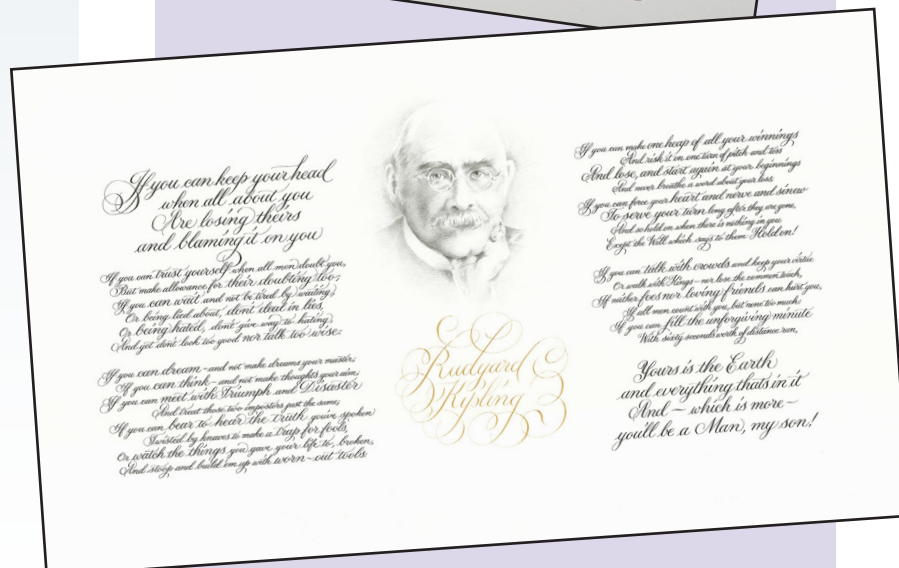 If you can keep your head
when all about you
Are losing theirs
and blaming it on you
If you can trust yourself when all men doubt you,
But make allowance for their doubting too;
If you can wait and not be tired by waiting,
Or being lied about, don't deal in lies,
Or being hated, don't give way to hating,
And yet don't look too good nor talk too wise:
If you can dream - and not make dreams your master;
If you can think - and not make thoughts your aim;
If you can meet with Triumph and Disaster
And treat those two impostors just the same;
If you can bear to hear the truth you've spoken
Twisted by knaves to make a trap for fools,
Or watch the things you gave your life to, broken,
And stoop and build 'em up with worn-out tools
Rudyard
Kipling
If you can make one heap of all your winnings
And risk it on one turn of pitch and toss
And lose, and start again at your beginnings
And never breathe a word about your loss;
If you can force your heart and nerve and sinew
To serve your turn long after they are gone,
And so hold on when there is nothing in you
Except the Will which says to them Hold on!
If you can talk with crowds and keep your virtue
Or walk with Kings - nor lose the common touch,
If neither foes nor loving friends can hurt you,
If all men count with you, but none too much:
If you can fill the unforgiving minute
With sixty seconds worth of distance run,
Yours is the Earth
and everything thats in it
And - which is more -
you'll be a Man, my son!